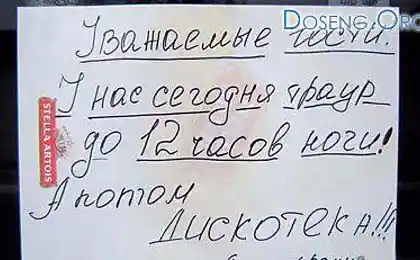 Doseng.Or
Уважаемые гости!
У нас сегодня траур
до 12 часов ночи!
STELLA ARTOIS
А потом
дискотека!!!